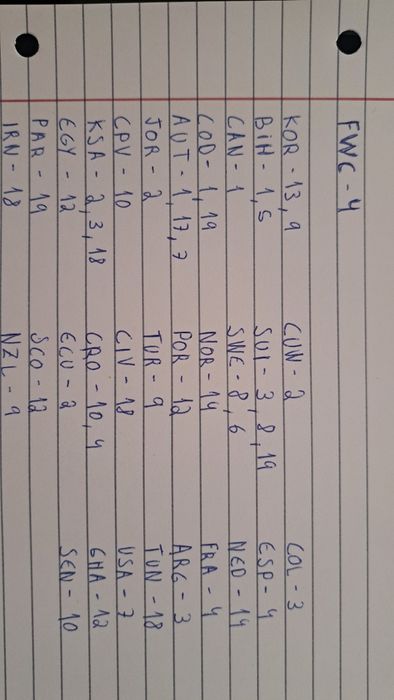 FWC - 4
KOR - 13, 9 CUW - 2 COL - 3
BiH - 1, 5 SUI - 3, 8, 19 ESP - 4
CAN - 1 SWE - 8, 6 NED - 14
COD - 1, 19 NOR - 14 FRA - 4
AUT - 1, 17, 7 POR - 12 ARG - 3
JOR - 2 TUR - 9 TUN - 18
CPV - 10 CIV - 18 USA - 7
KSA - 2, 3, 18 CRO - 10, 4 GHA - 12
EGY - 12 ECU - 2 SEN - 10
PAR - 19 SCO - 12
IRN - 18 NZL - 9